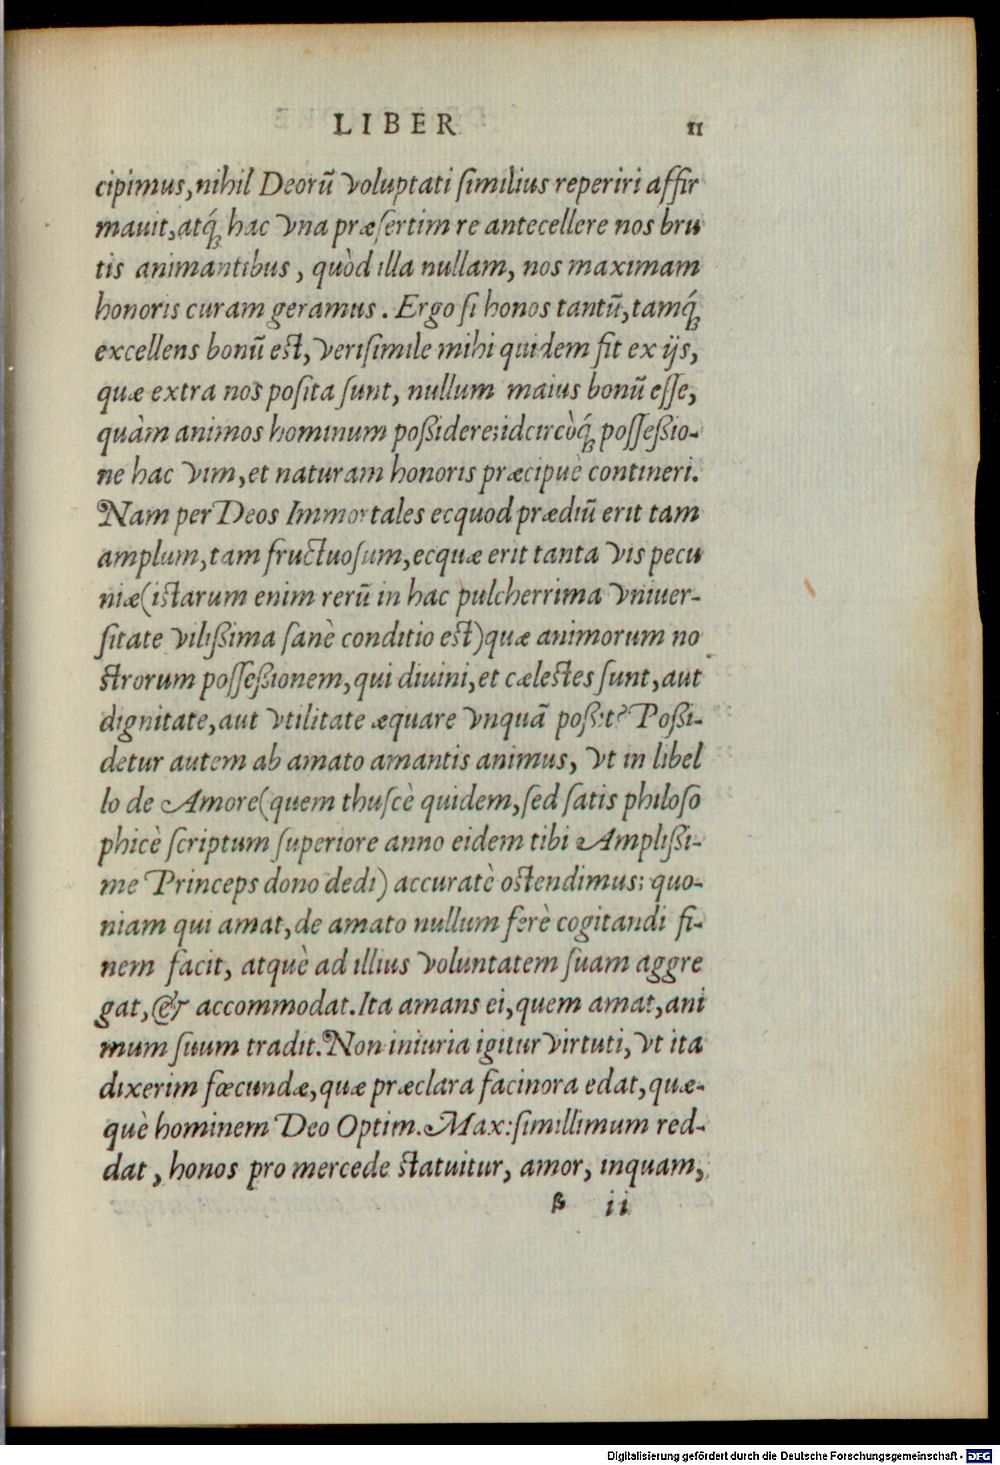 LIBER 11
cipimus, nihil Deorū voluptati similius reperiri affir
mauit, atq́; hac vna præsertim re antecellere nos bru
tis animantibus, quòd illa nullam, nos maximam
honoris curam geramus. Ergo si honos tantū, tamq́;
excellens bonū est, verisimile mihi quidem fit ex ijs,
quæ extra nos posita sunt, nullum maius bonū esse,
quàm animos hominum poßidere: idcircòq́; posseßio-
ne hac vim, et naturam honoris præcipuè contineri.
Nam per Deos Immortales ecquod prædiū erit tam
amplum, tam fructuosum, ecquæ erit tanta vis pecu
niæ (istarum enim rerū in hac pulcherrima vniuer-
sitate vilißima sanè conditio est) quæ animorum no
strorum posseßionem, qui diuini, et cælestes sunt, aut
dignitate, aut vtilitate æquare vnquā poßit? Poßi-
detur autem ab amato amantis animus, vt in libel
lo de Amore (quem thuscè quidem, sed satis philoso
phicè scriptum superiore anno eidem tibi Amplißi-
me Princeps dono dedi) accuratè ostendimus: quo-
niam qui amat, de amato nullum ferè cogitandi fi-
nem facit, atquè ad illius voluntatem suam aggre
gat, & accommodat. Ita amans ei, quem amat, ani
mum suum tradit. Non iniuria igitur virtuti, vt ita
dixerim fœcundæ, quæ præclara facinora edat, quæ-
què hominem Deo Optim. Max: simillimum red-
dat, honos pro mercede statuitur, amor, inquam,
B ii
Digitalisierung gefördert durch die Deutsche Forschungsgemeinschaft - DFG